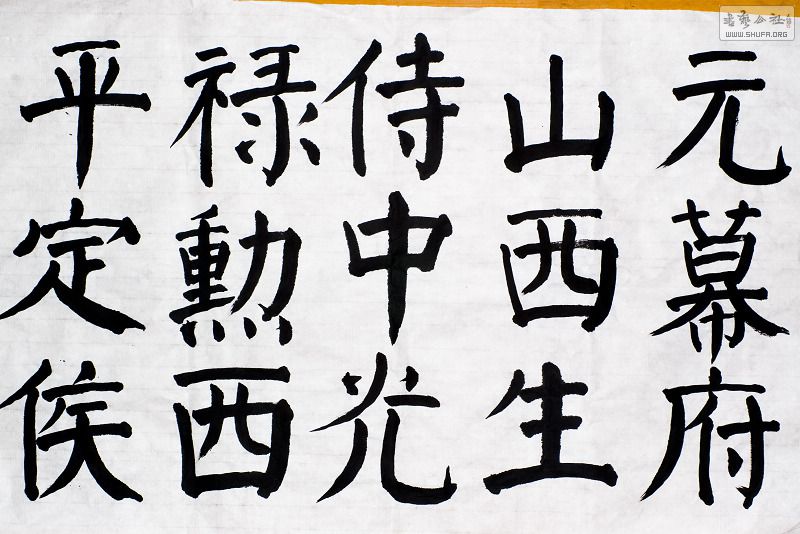 元幕府
山西生
侍中光
禄勲西
平定侯
书艺公社
WWW.SHUFA.ORG